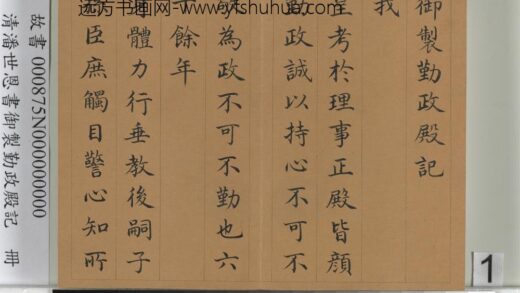 远方书画网:www.yfshuhua.com
御製勤政殿記
我
皇考於理事正殿皆顏
勤政誠以持心不可不
敬為政不可不勤也六
十餘年
體力行垂教後嗣子
臣庶觸目警心知所
故書 000875N000000000
清潘世恩書御製勤政殿記 冊
1